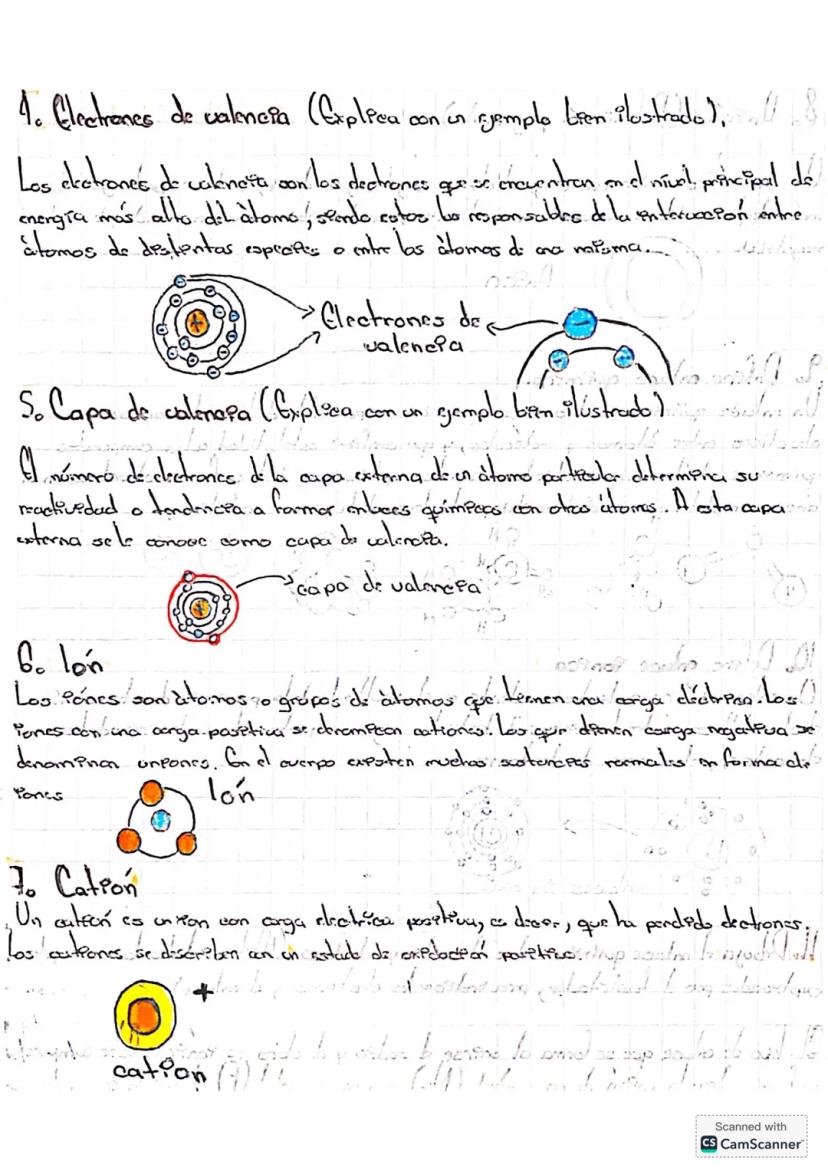 4. Electrones de valencia (Explica con un ejemplo bien ilustrado).
Los electrones de valencia son los electrones que se encuentran en el nivel principal de
energía más alto del átomo, siendo estos los responsables de la interacción entre
átomos de distintas especies o entre los átomos de una misma.
Electrones de
valencia
5. Capa de valencia (Explica con un ejemplo bien ilustrado)
El número de electrones de la capa externa de un átomo particular determina su
reactividad o tendencia a formar enlaces químicos con otros átomos. A esta capa
externa se le conoce como capa de valencia.
capa de valencia
6. Ión
Los iónes son átomos o grupos de átomos que tienen una carga eléctrica. Los
iones con una carga positiva se denominan cationes. Los que tienen carga negativa se
denominan aniones. En el cuerpo existen muchas sustancias normales en forma de
iones
Ión
7. Catión
Un catión es un ion con carga electrica positiva, es decir, que ha perdido electrones.
Los cationes se describen con un estado de oxidación positivo.
+
cation
Scanned with
CS CamScanner